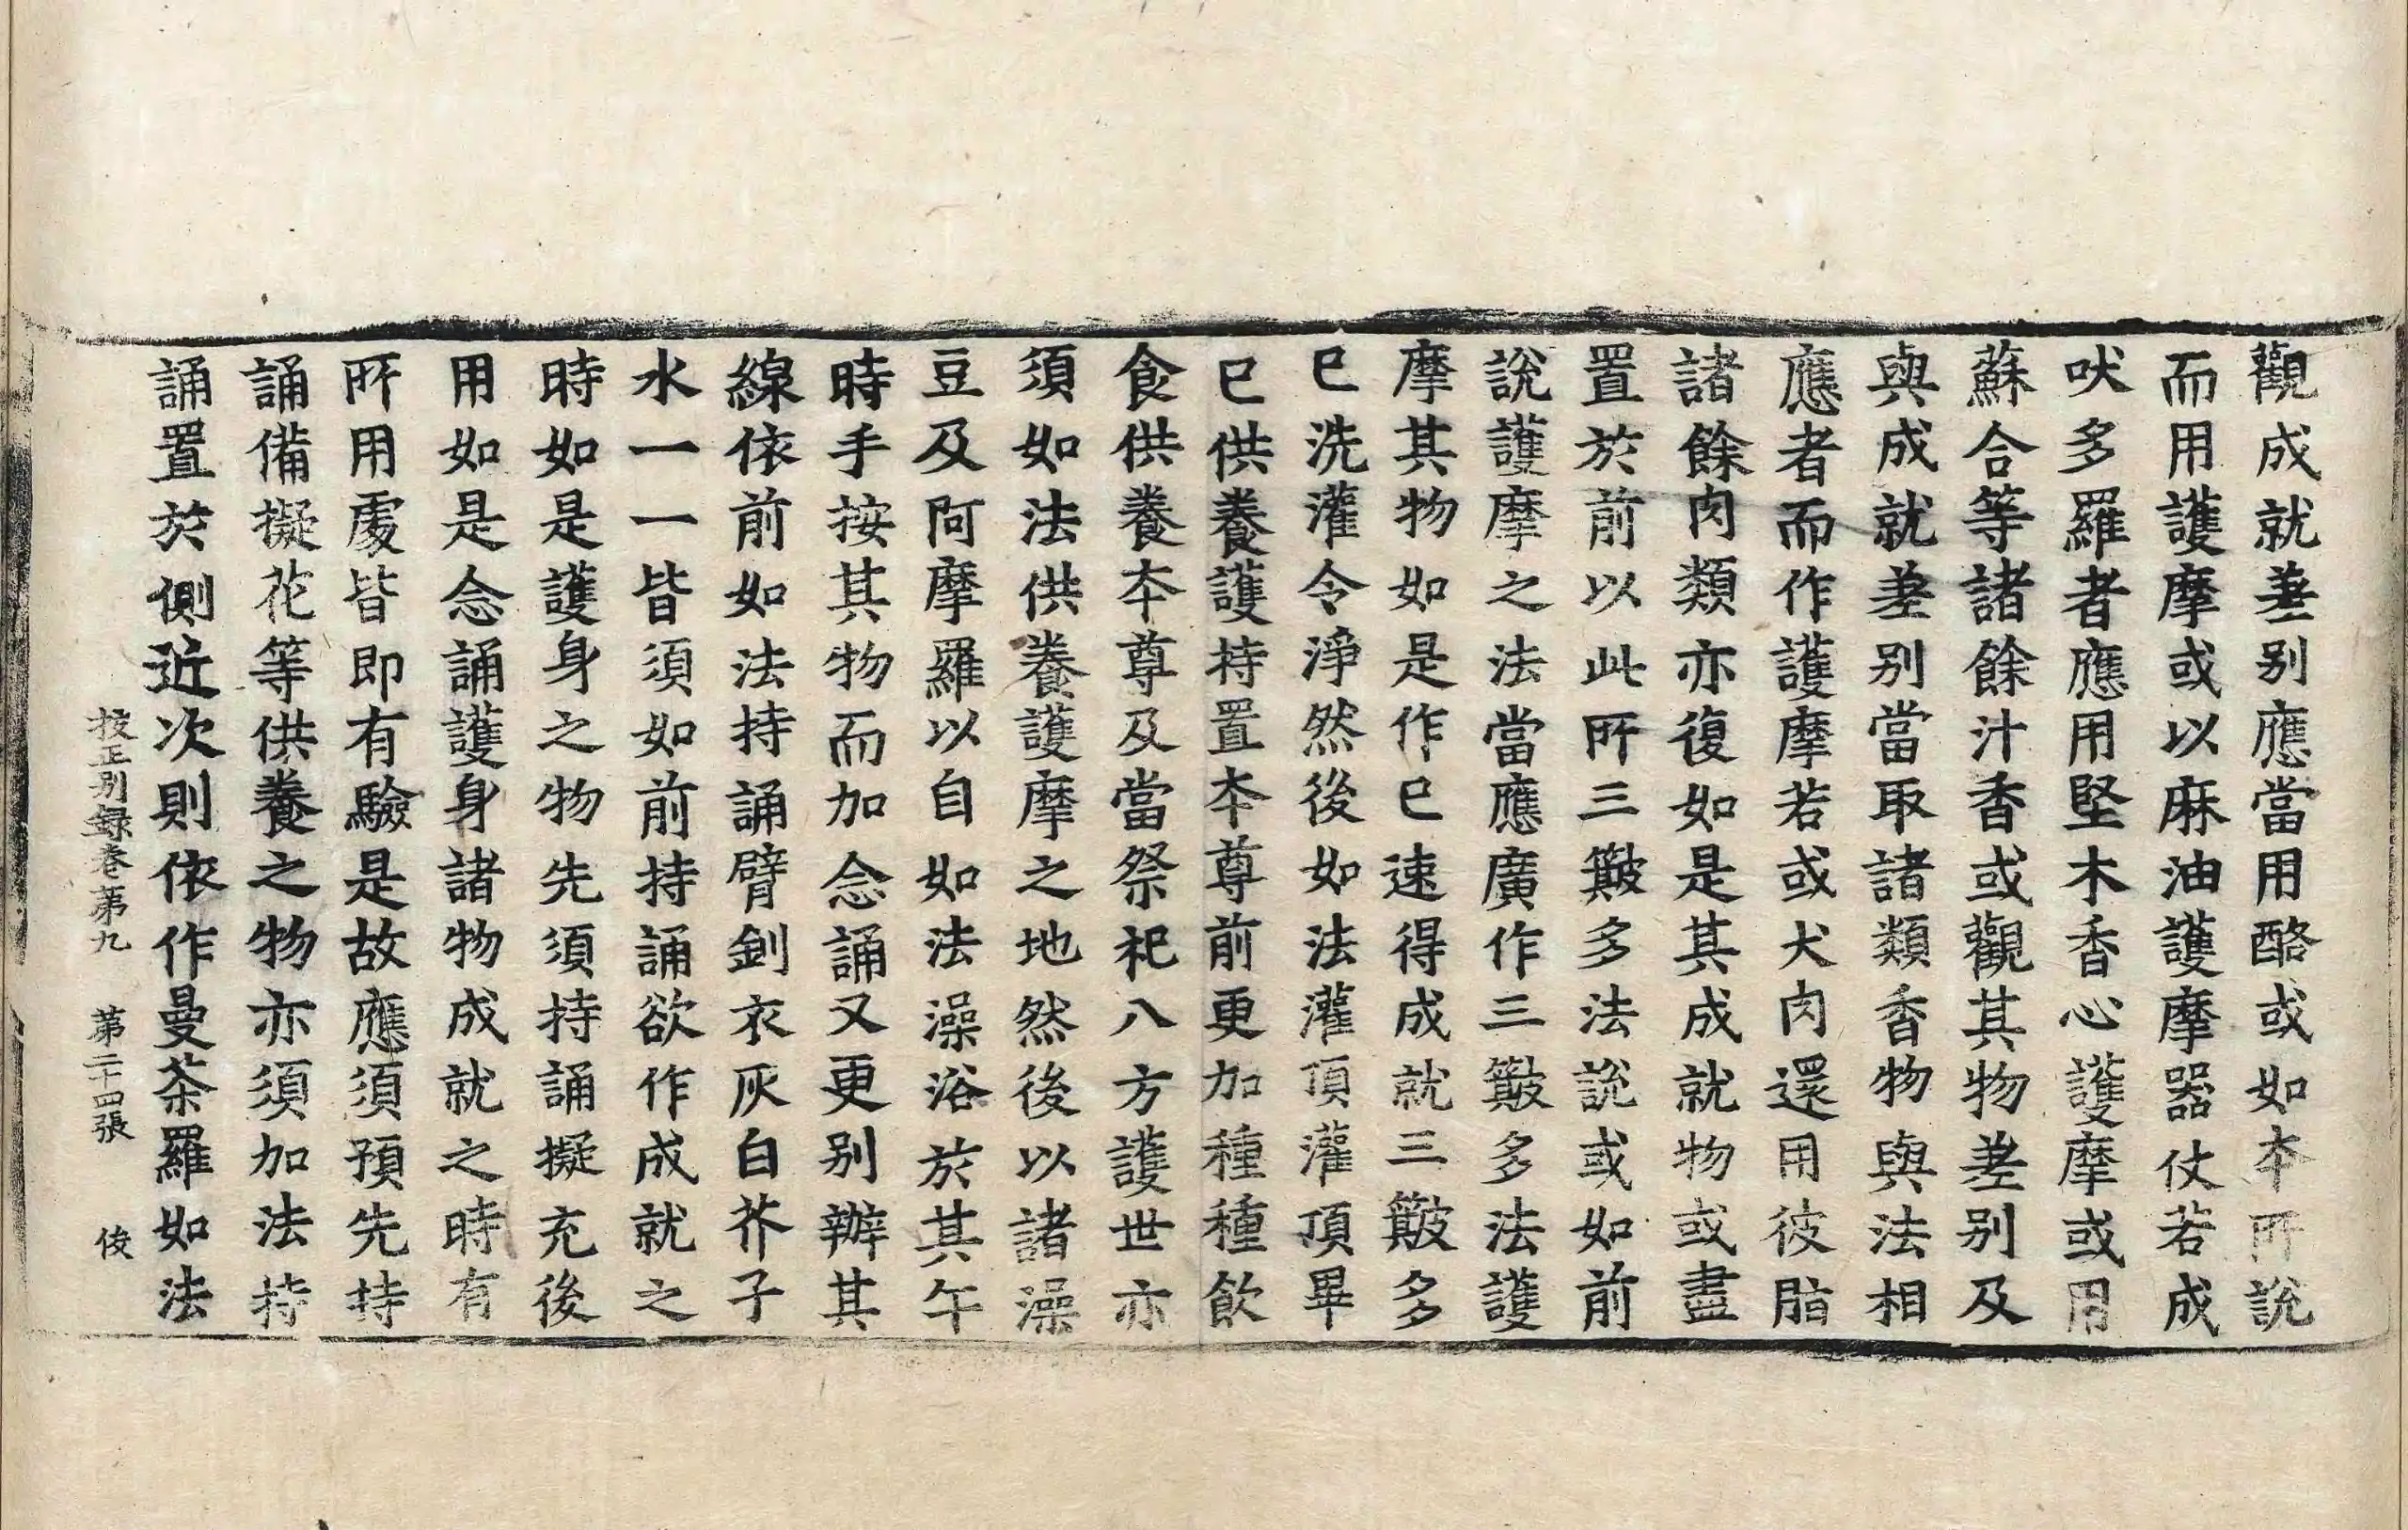 觀成就差別應當用酪或如本所說
而用護摩或以麻油護摩器仗若成
吠多羅者應用堅木香心護摩或用
蘇合等諸餘汁香或觀其物差別及
與成就差別當取諸類香物與法相
應者而作護摩若或犬肉還用彼脂
諸餘肉類亦復如是其成就物或盡
置於前以此所三簸多法說或如前
說護摩之法當應廣作三簸多法護
摩其物如是作已速得成就三簸多
已洗灌令淨然後如法灌頂灌頂畢
已供養護持置本尊前更加種種飲
食供養本尊及當祭祀八方護世亦
須如法供養護摩之地然後以諸澡
豆及阿摩羅以自如法澡浴於其午
時手按其物而加念誦又更別辦其
線依前如法持誦臂釧衣灰白芥子
水一一皆須如前持誦欲作成就之
時如是護身之物先須持誦擬充後
用如是念誦護身諸物成就之時有
所用處皆即有驗是故應須預先持
誦備擬花等供養之物亦須加法持
誦置於側近次則依作曼茶羅如法
校正別錄卷第九 第二十四張 俊